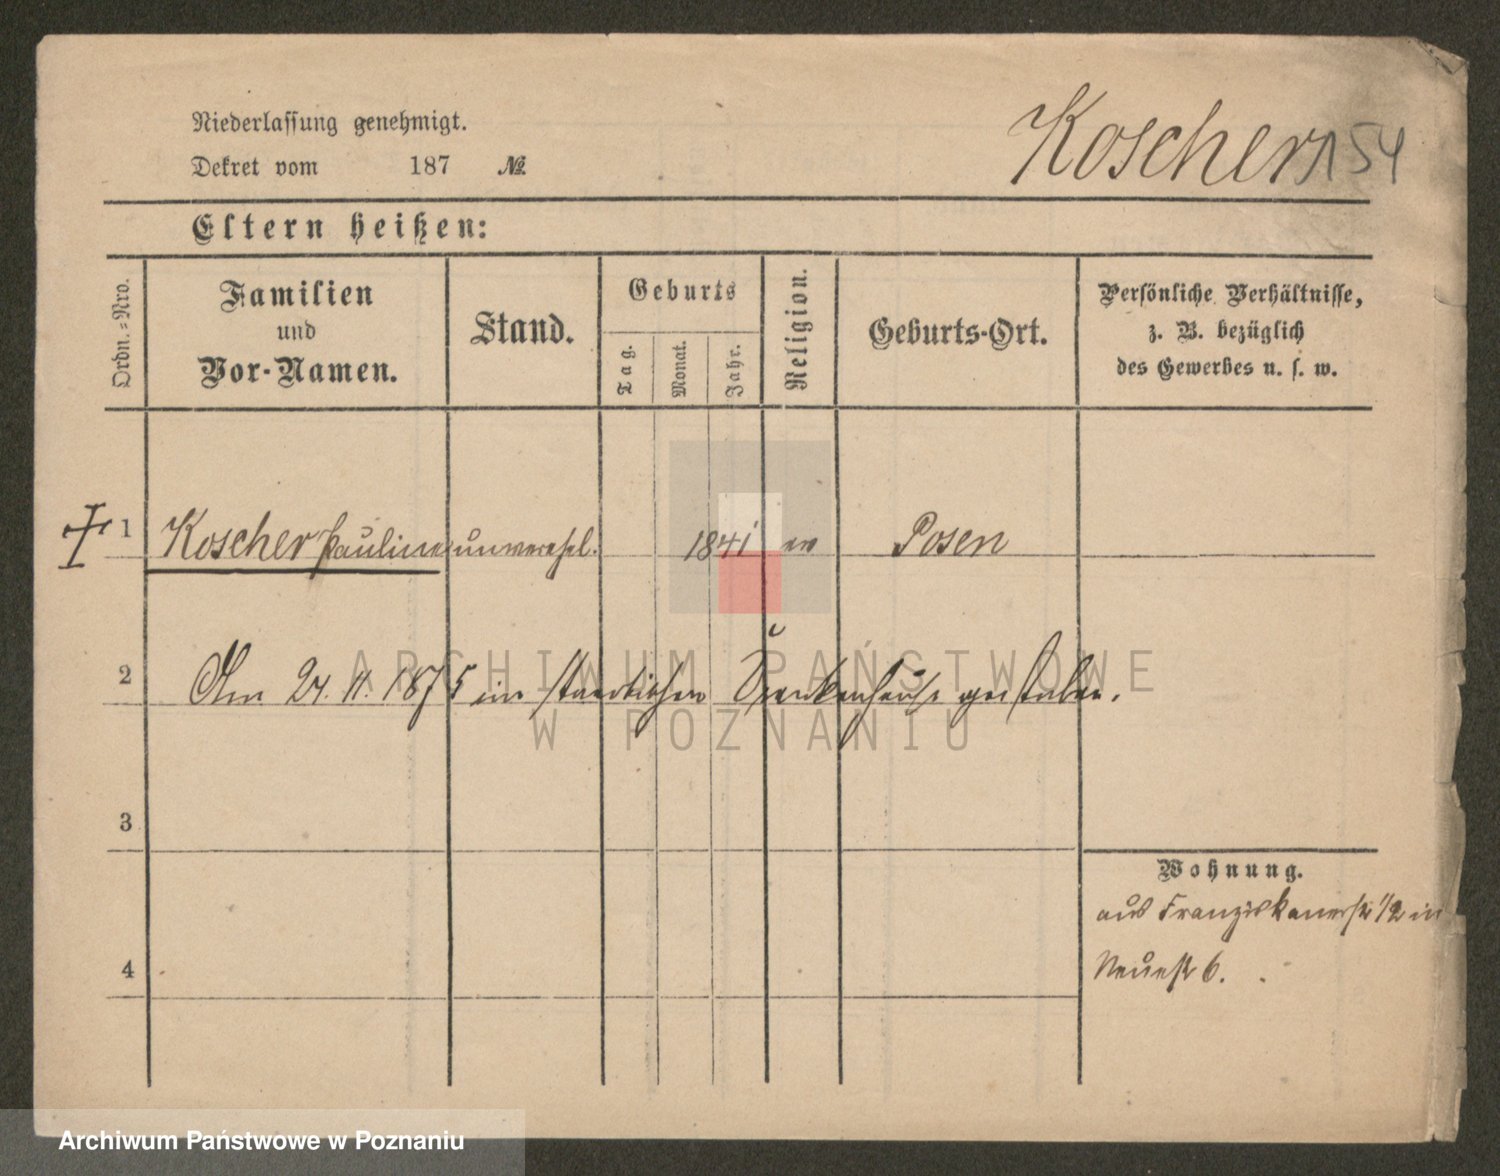 Niederlassung genehmigt.
Dekret vom 187 №
Koscher 154
Eltern heißen:
Ordn.-Nro.
Familien
und
Vor-Namen.
Stand.
Geburts
Tag.
Monat.
Jahr.
Religion.
Geburts-Ort.
Persönliche Verhältnisse,
z. B. bezüglich
des Gewerbes u. s. w.
1 Koscher Pauline unverehel. 1841 ev Posen
2 Am 24. 11. 1875 im staedtischen Krankenhause gestorben.
3
4
Wohnung.
aus Franziskanerstr 1/2 in
Neuestr 6.
ARCHIWUM PAŃSTWOWE
W POZNANIU
Archiwum Państwowe w Poznaniu